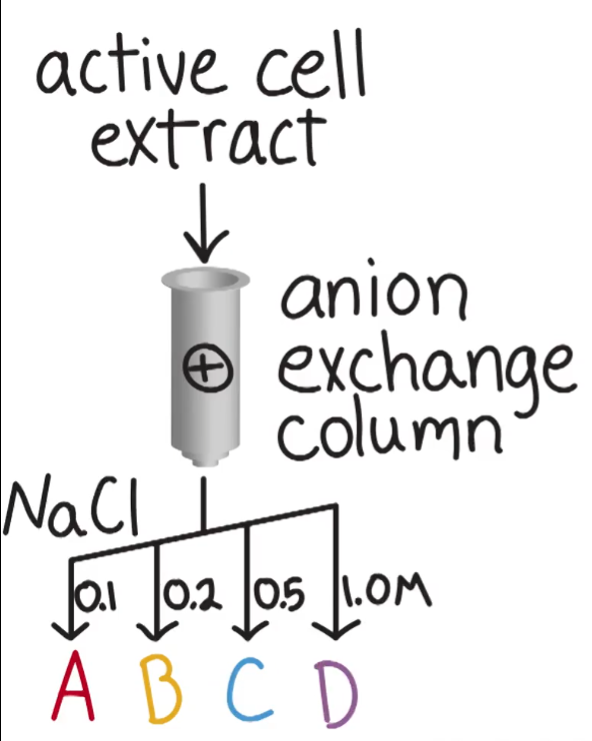 active cell
extract
+
anion
exchange
column
NaCl
0.1 0.2 0.5 1.0M
A B C D